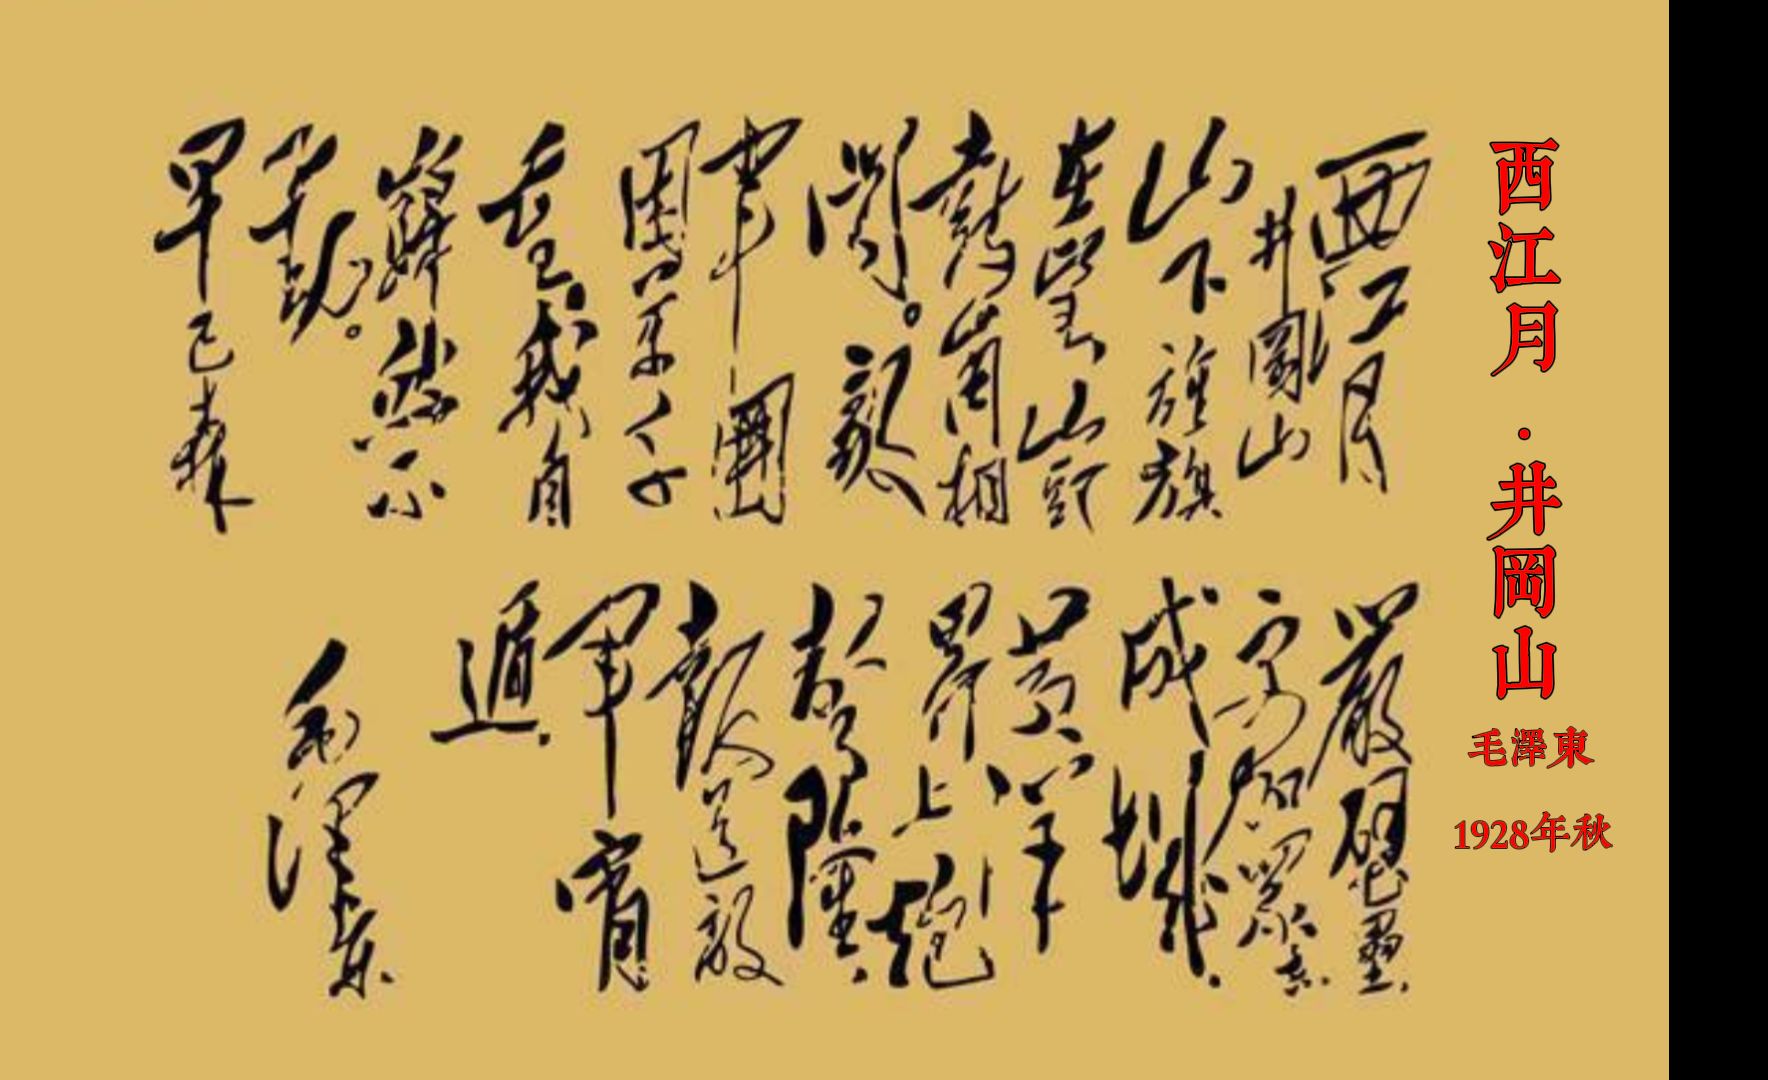 西江月·井岡山
毛澤東
1928年秋
西江月
井岡山
山下旌旗
在望山頭
鼓角相
聞。敵
軍圍
困万千
重我自
巋然不
動。
早已森
嚴壁壘,
更加眾志
成城.
黃洋
界上炮
聲隆.
報道敵
軍宵
遁.
毛澤東